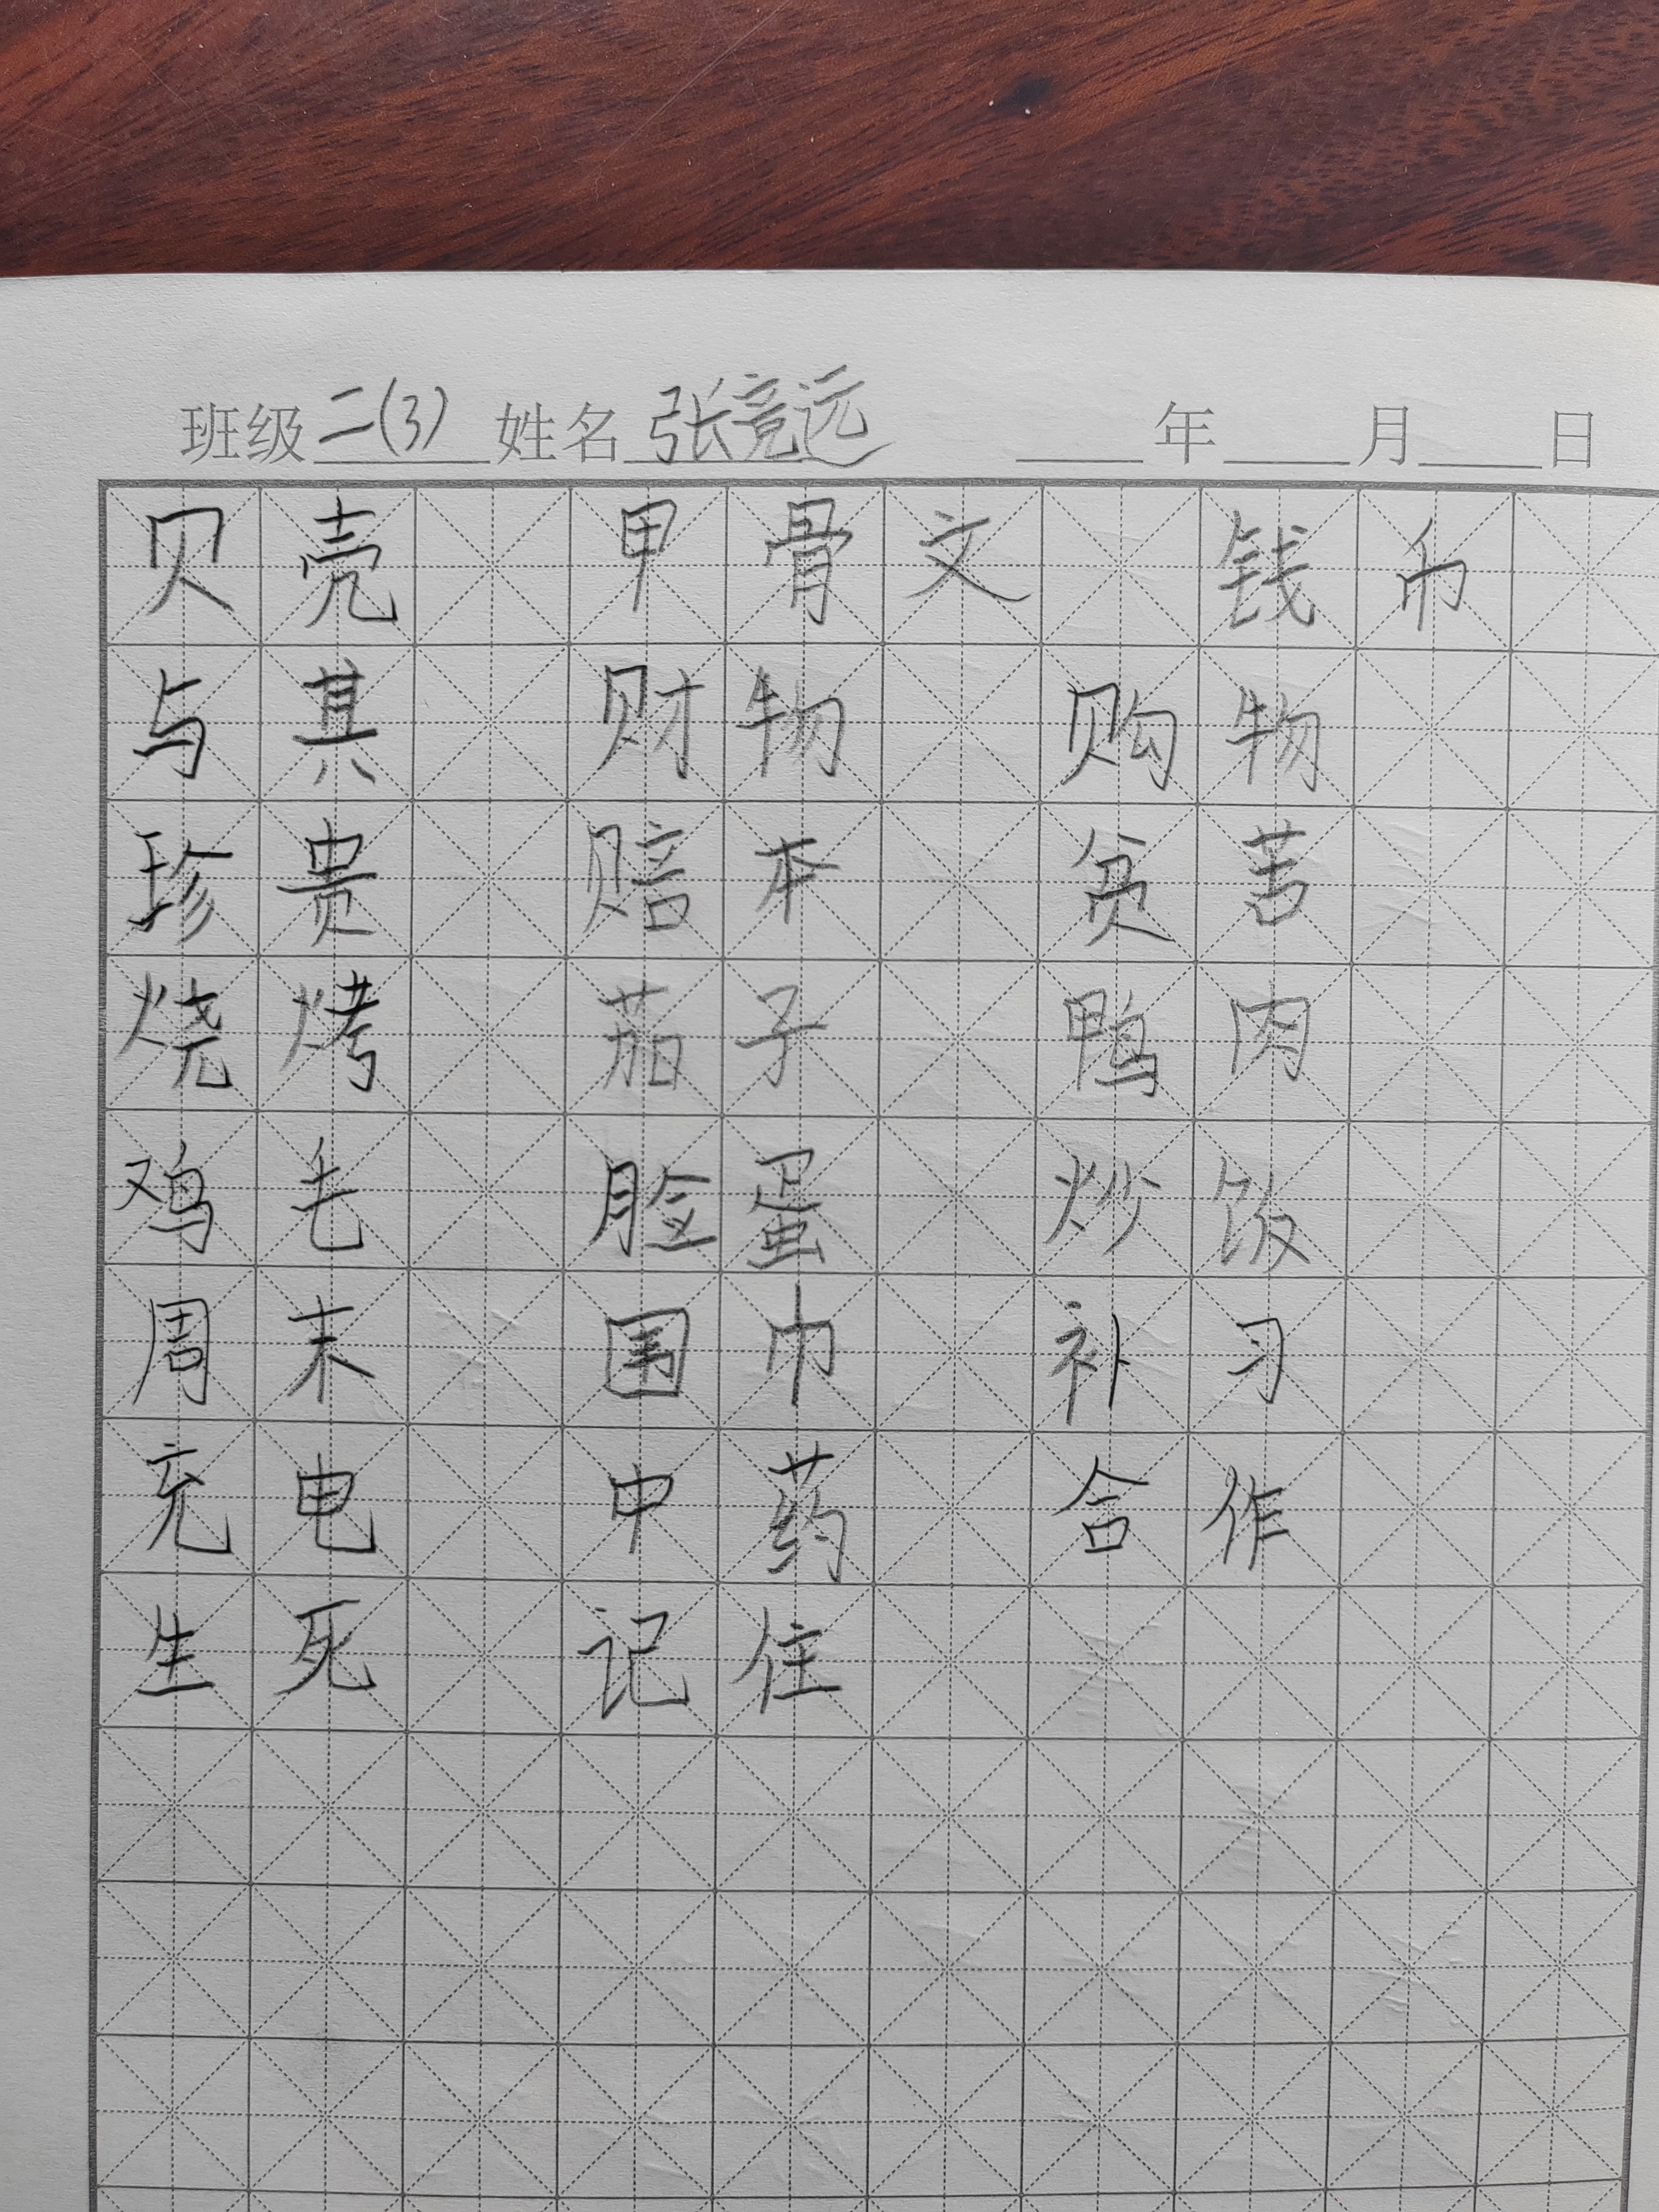 班级 二(3) 姓名 张竞远 年 月 日
贝壳 甲骨文 钱币
与其 财物 购物
珍贵 赔本 贫苦
烧烤 茄子 鸭肉
鸡毛 脸蛋 炒饭
周末 围巾 补习
充电 中药 合作
生死 记住